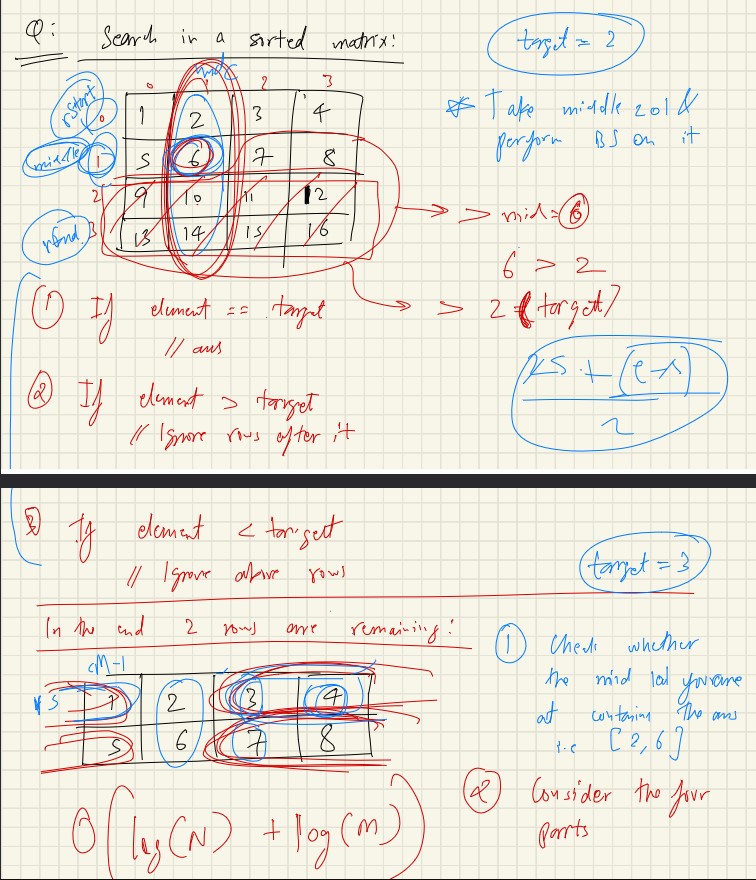 Q: Search in a sorted matrix:
target = 2
mid c
0 2 3
rstart 0 1 2 3 4
middle 1 5 6 7 8
2 9 10 11 12
rEnd 3 13 14 15 16
* Take middle col &
perform BS on it
> mid = 6
6 > 2
> 2 (target)
① If element == target
// ans
② If element > target
// Ignore rows after it
2
③ If element < target
// Ignore above rows
target = 3
In the end 2 rows are remaining:
cM-1
rS 1 2 3 4
5 6 7 8
① Check whether
the mid col you are
at contains the ans
i.e [2, 6]
② Consider the four
parts
O(log(N) + log(M))